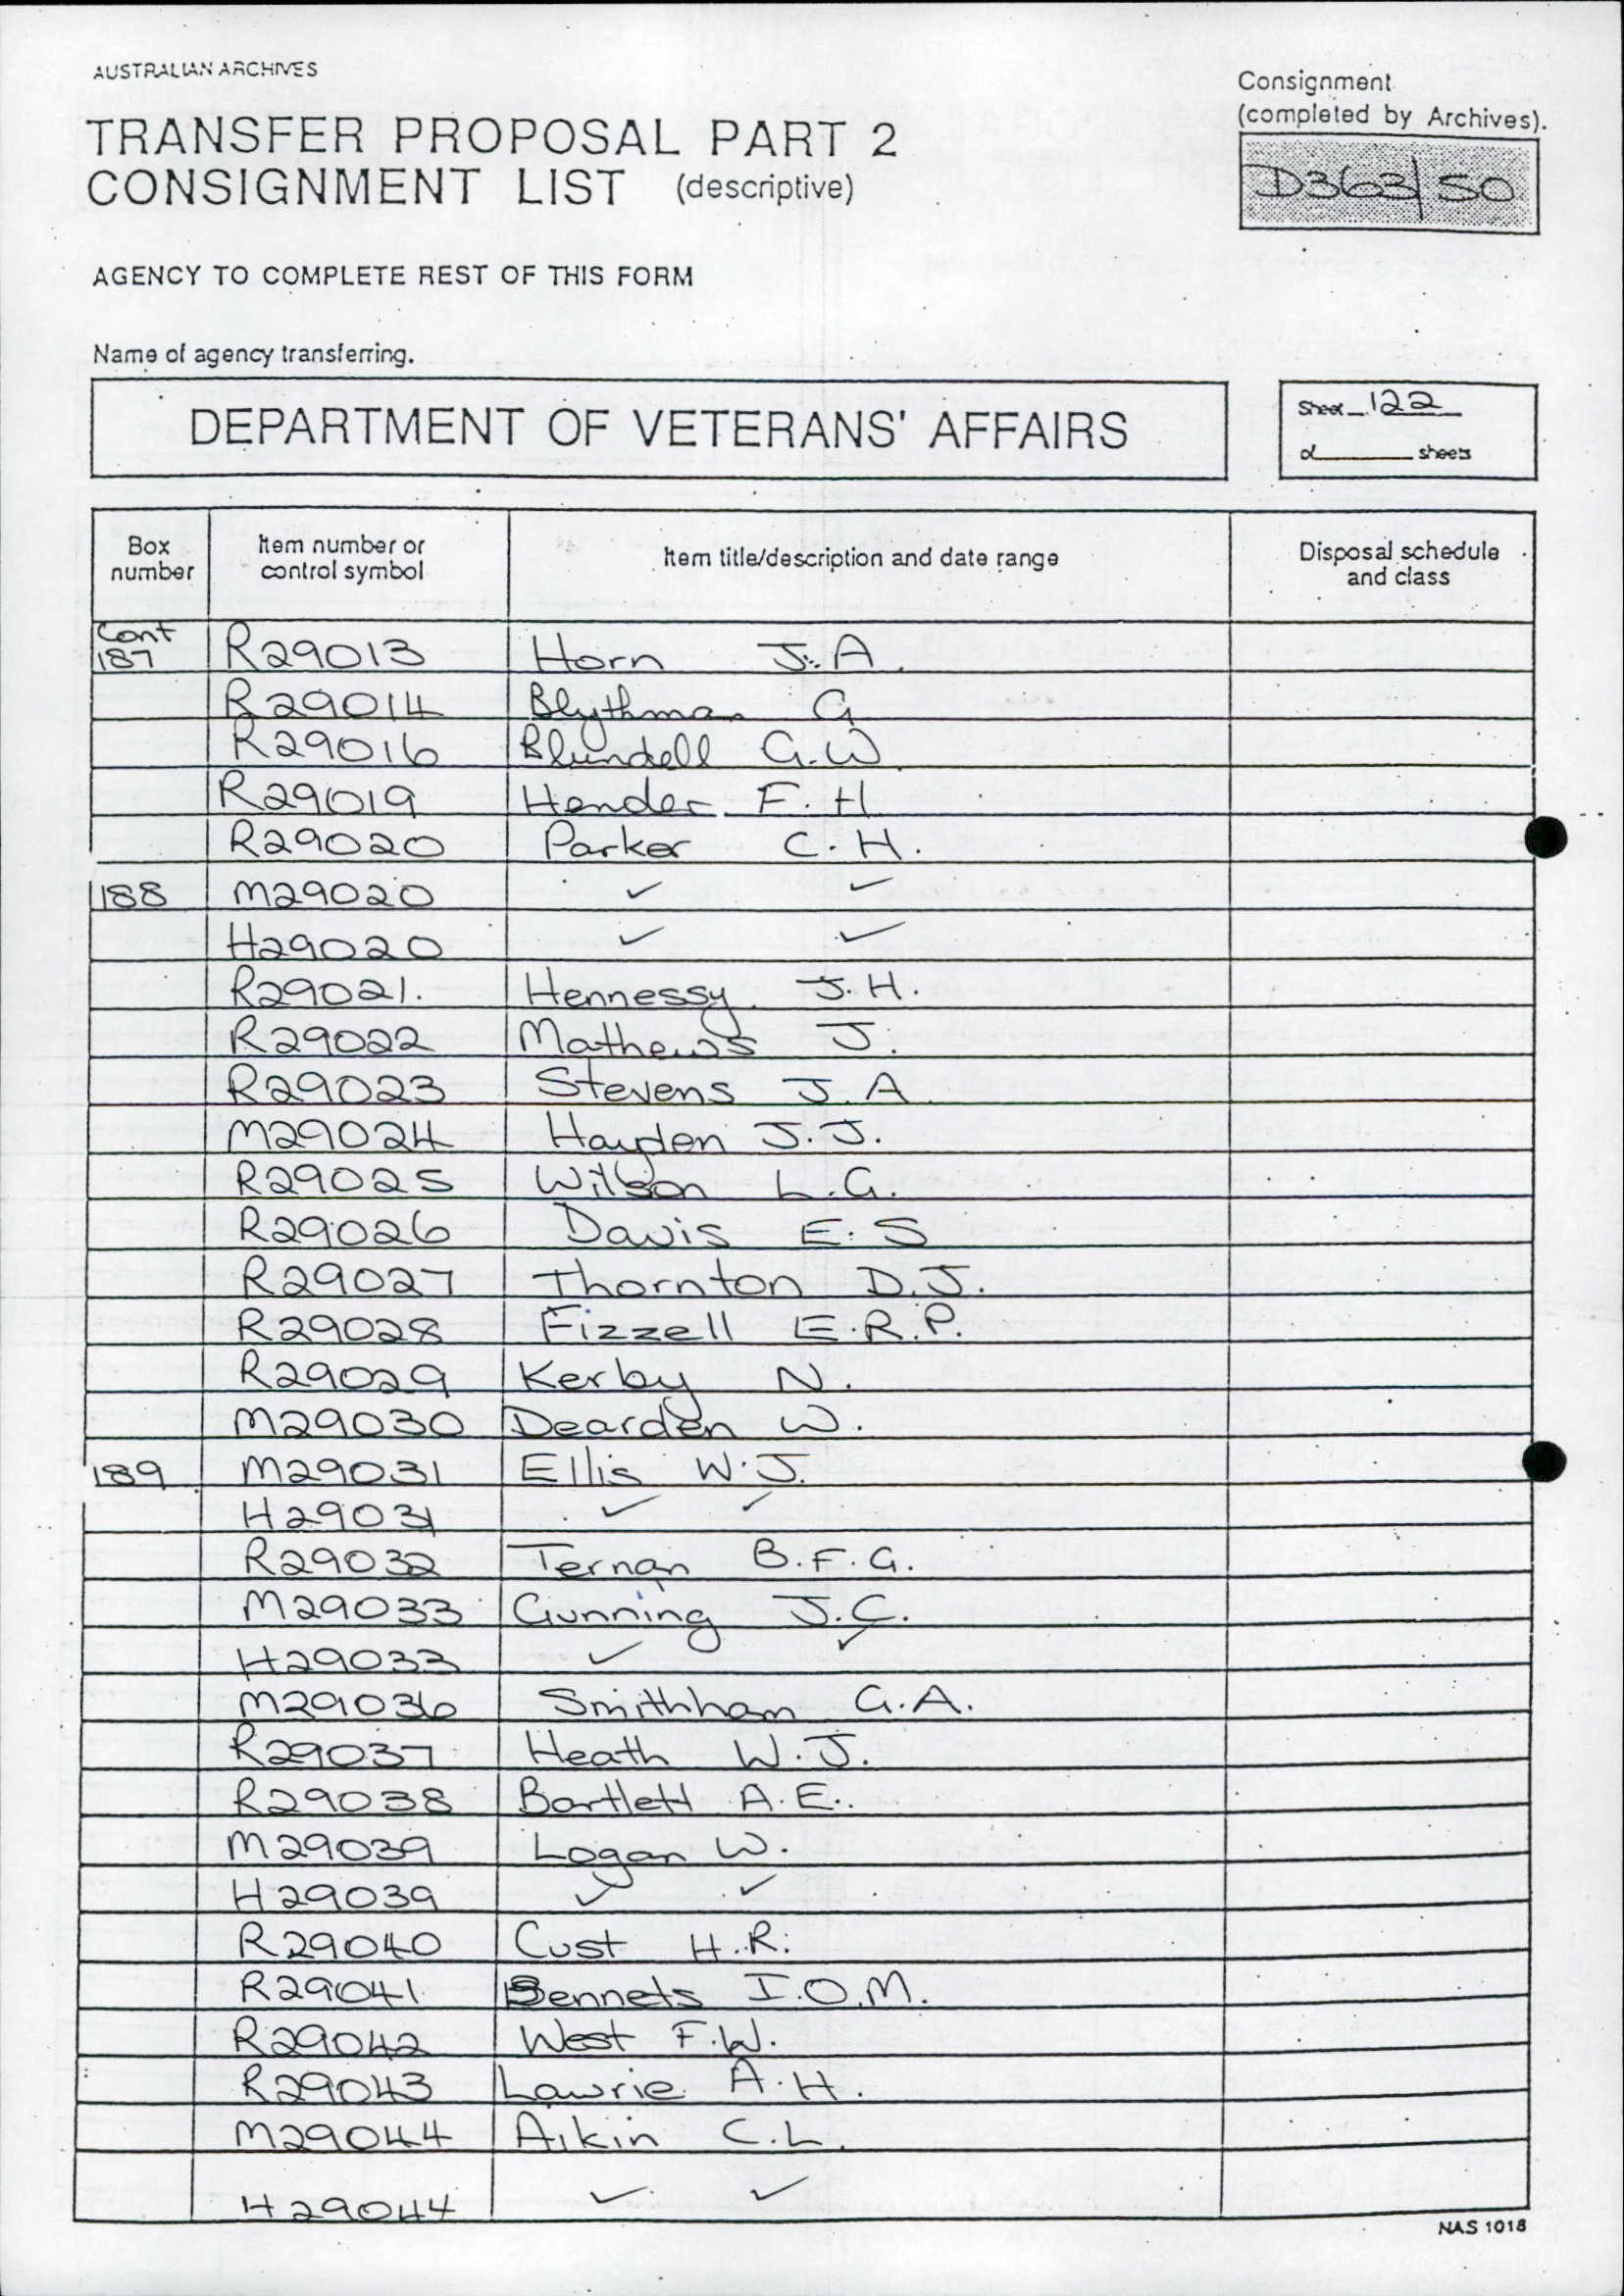 AUSTRALIAN ARCHIVES
Consignment
(completed by Archives).
TRANSFER PROPOSAL PART 2
CONSIGNMENT LIST (descriptive)
D363/50
AGENCY TO COMPLETE REST OF THIS FORM
Name of agency transferring.
DEPARTMENT OF VETERANS' AFFAIRS
Sheet 122
of ______ sheets
Box number Item number or control symbol Item title/description and date range Disposal schedule and class
Cont 187 R29013 Horn J.A.
R29014 Blythman G
R29016 Blundell G.W
R29019 Hender F.H
R29020 Parker C.H.
188 M29020 ✓ ✓
H29020 ✓ ✓
R29021. Hennessy J.H.
R29022 Mathews J.
R29023 Stevens J.A
M29024 Hayden J.J.
R29025 Wilson L.G.
R29026 Davis E.S
R29027 Thornton D.J.
R29028 Fizzell E.R.P.
R29029 Kerby N.
M29030 Dearden W.
189 M29031 Ellis W.J.
H29031 ✓ ✓
R29032 Ternan B.F.G.
M29033 Gunning J.C.
H29033 ✓ ✓
M29036 Smithham G.A.
R29037 Heath W.J.
R29038 Bartlett A.E.
M29039 Logan W.
H29039 ✓ ✓
R29040 Cust H.R.
R29041 Bennets I.O.M.
R29042 West F.W.
R29043 Lawrie A.H.
M29044 Aikin C.L.
H29044 ✓ ✓
NAS 1018